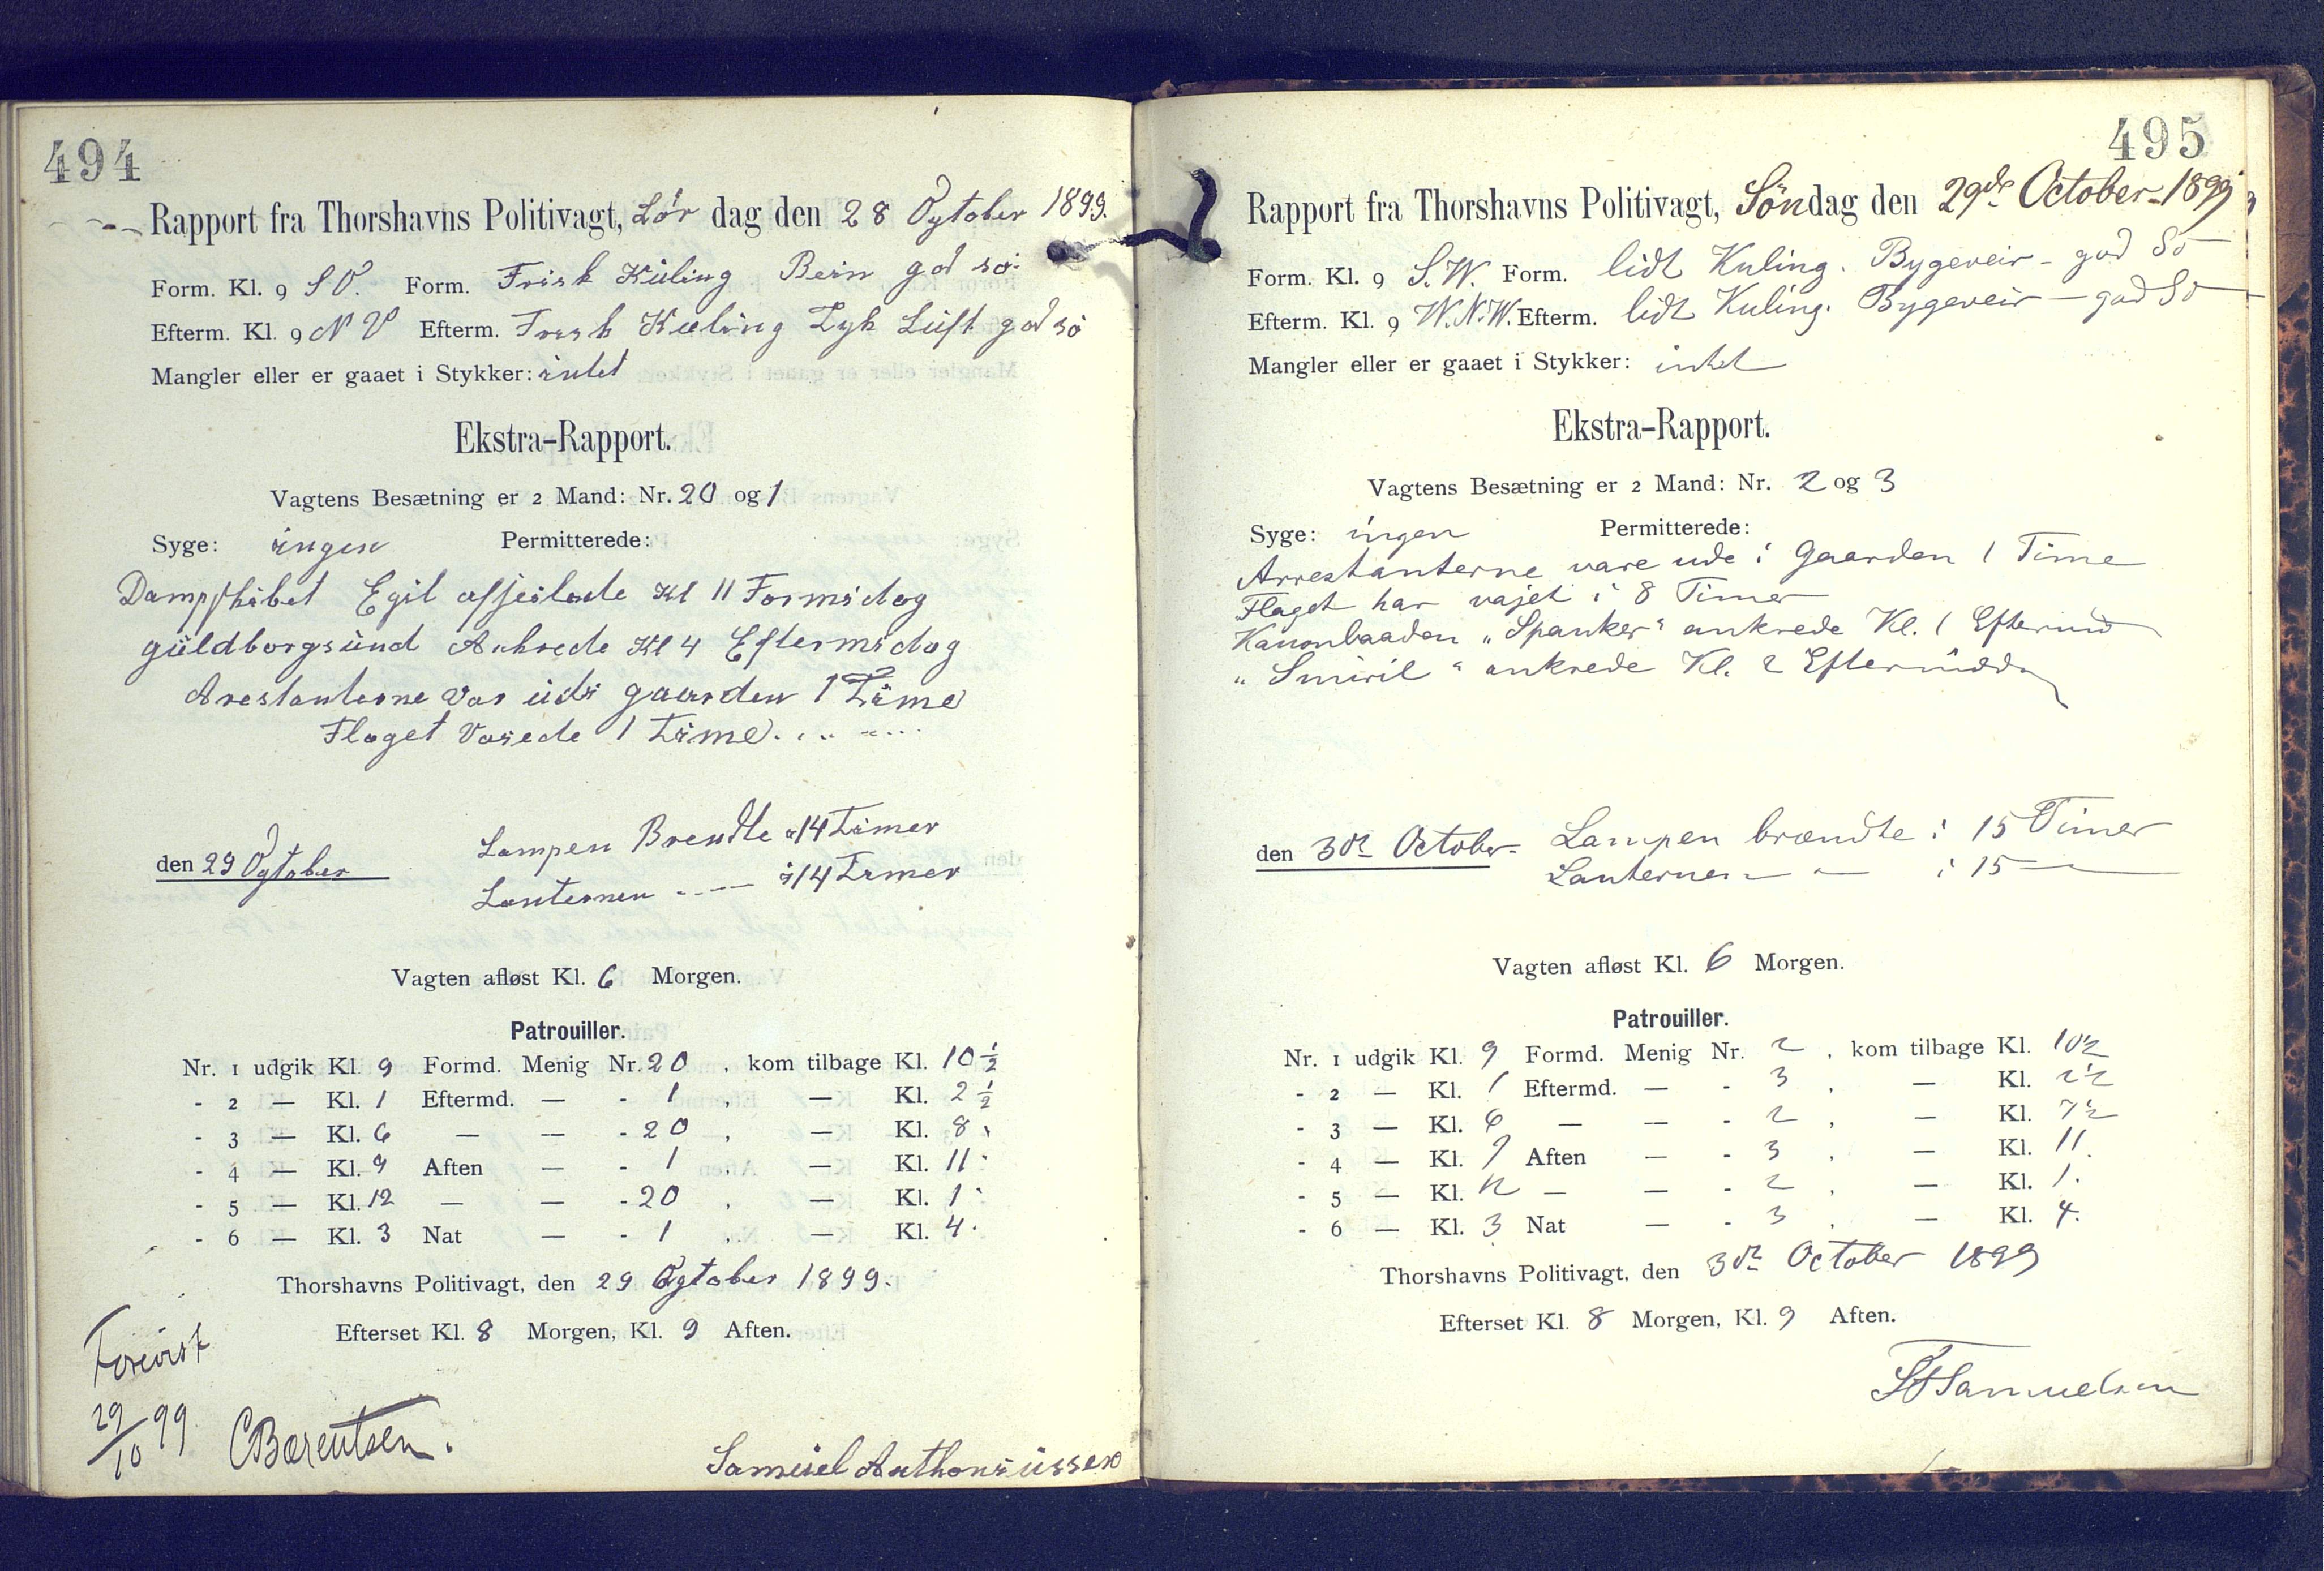 494
Rapport fra Thorshavns Politivagt, Lør dag den 28 Ogtober 1899.
Form. Kl. 9 SO. Form. Frisk Kúling Rein god sø.
Efterm. Kl. 9 NV Efterm. Frisk Kuling Tyk Lúft god sø
Mangler eller er gaaet i Stykker: intet
Ekstra-Rapport.
Vagtens Besætning er 2 Mand: Nr. 20 og 1
Syge: ingen Permitterede:
Dampskibet Egil afseilede Kl 11 Formidag
gúldborgsúnd Ankrede Kl 4 Eftermidag
Arestanterne Var údi gaarden 1 Time
Flaget Vaiede 1 Time.
den 29 Ogtober
Lampen Brendte i 14 Timer
Lanternen - - - — i 14 Timer
Vagten afløst Kl. 6 Morgen.
Patrouiller.
Nr. 1 udgik Kl. 9 Formd. Menig Nr. 20 , kom tilbage Kl. 10 ½
- 2 — Kl. 1 Eftermd. — - 1 , — Kl. 2 ½
- 3 — Kl. 6 — — - 20 , — Kl. 8
- 4 — Kl. 9 Aften — - 1 , — Kl. 11
- 5 — Kl. 12 — — - 20 , — Kl. 1
- 6 — Kl. 3 Nat — - 1 , — Kl. 4.
Thorshavns Politivagt, den 29 Ogtober 1899.
Efterset Kl. 8 Morgen, Kl. 9 Aften.
Forevist
29/10 99. CBærentsen.
Samúel Anthoniússen
495
Rapport fra Thorshavns Politivagt, Søndag den 29de October 1899
Form. Kl. 9 S.W. Form. lidt Kuling. Bygeveir - god Sø
Efterm. Kl. 9 W.N.W. Efterm. lidt Kuling. Bygeveir — god Sø —
Mangler eller er gaaet i Stykker: intet
Ekstra-Rapport.
Vagtens Besætning er 2 Mand: Nr. 2 og 3
Syge: ingen Permitterede:
Arrestanterne vare ude i Gaarden 1 Time
Flaget har vajet i 8 Timer
Kanonbaaden „Spanker" ankrede Kl. 1 Eftermd
„Smiril" ankrede Kl. 2 Eftermidda
den 30te October Lampen brændte i 15 Timer
Lanternen — i 15 —
Vagten afløst Kl. 6 Morgen.
Patrouiller.
Nr. 1 udgik Kl. 9 Formd. Menig Nr. 2 , kom tilbage Kl. 10½
- 2 — Kl. 1 Eftermd. — - 3 , — Kl. 2½
- 3 — Kl. 6 — — - 2 , — Kl. 7½
- 4 — Kl. 9 Aften — - 3 , — Kl. 11.
- 5 — Kl. 12 — — - 2 , — Kl. 1.
- 6 — Kl. 3 Nat — - 3 , — Kl. 4.
Thorshavns Politivagt, den 30te October 1899
Efterset Kl. 8 Morgen, Kl. 9 Aften.
Samuelsen